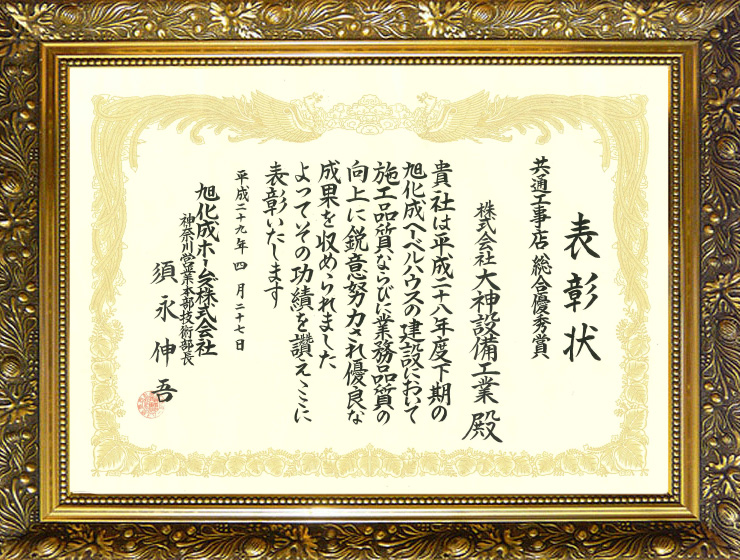 表彰状
共通工事店 総合優秀賞
株式会社大神設備工業 殿
貴社は平成二十八年度下期の
旭化成へーベルハウスの建設において
施工品質ならびに業務品質の
向上に鋭意努力され優良な
成果を収められました
よってその功績を讃えここに
表彰いたします
平成二十九年四月二十七日
旭化成ホームズ株式会社
神奈川営業本部技術部長
須永伸吾